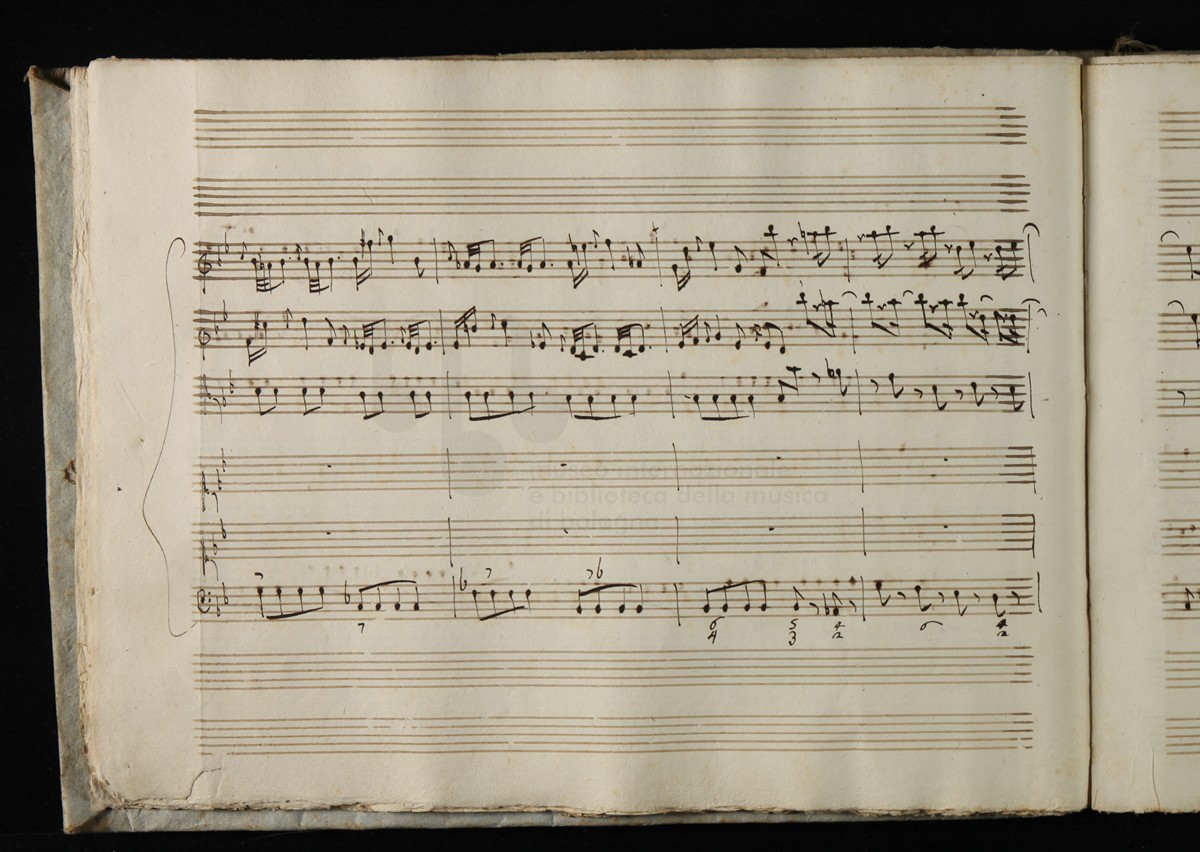 museo internazionale
e biblioteca della musica
di bologna
7 7 7b
7 6 5 4 6 4
4 3 2 2